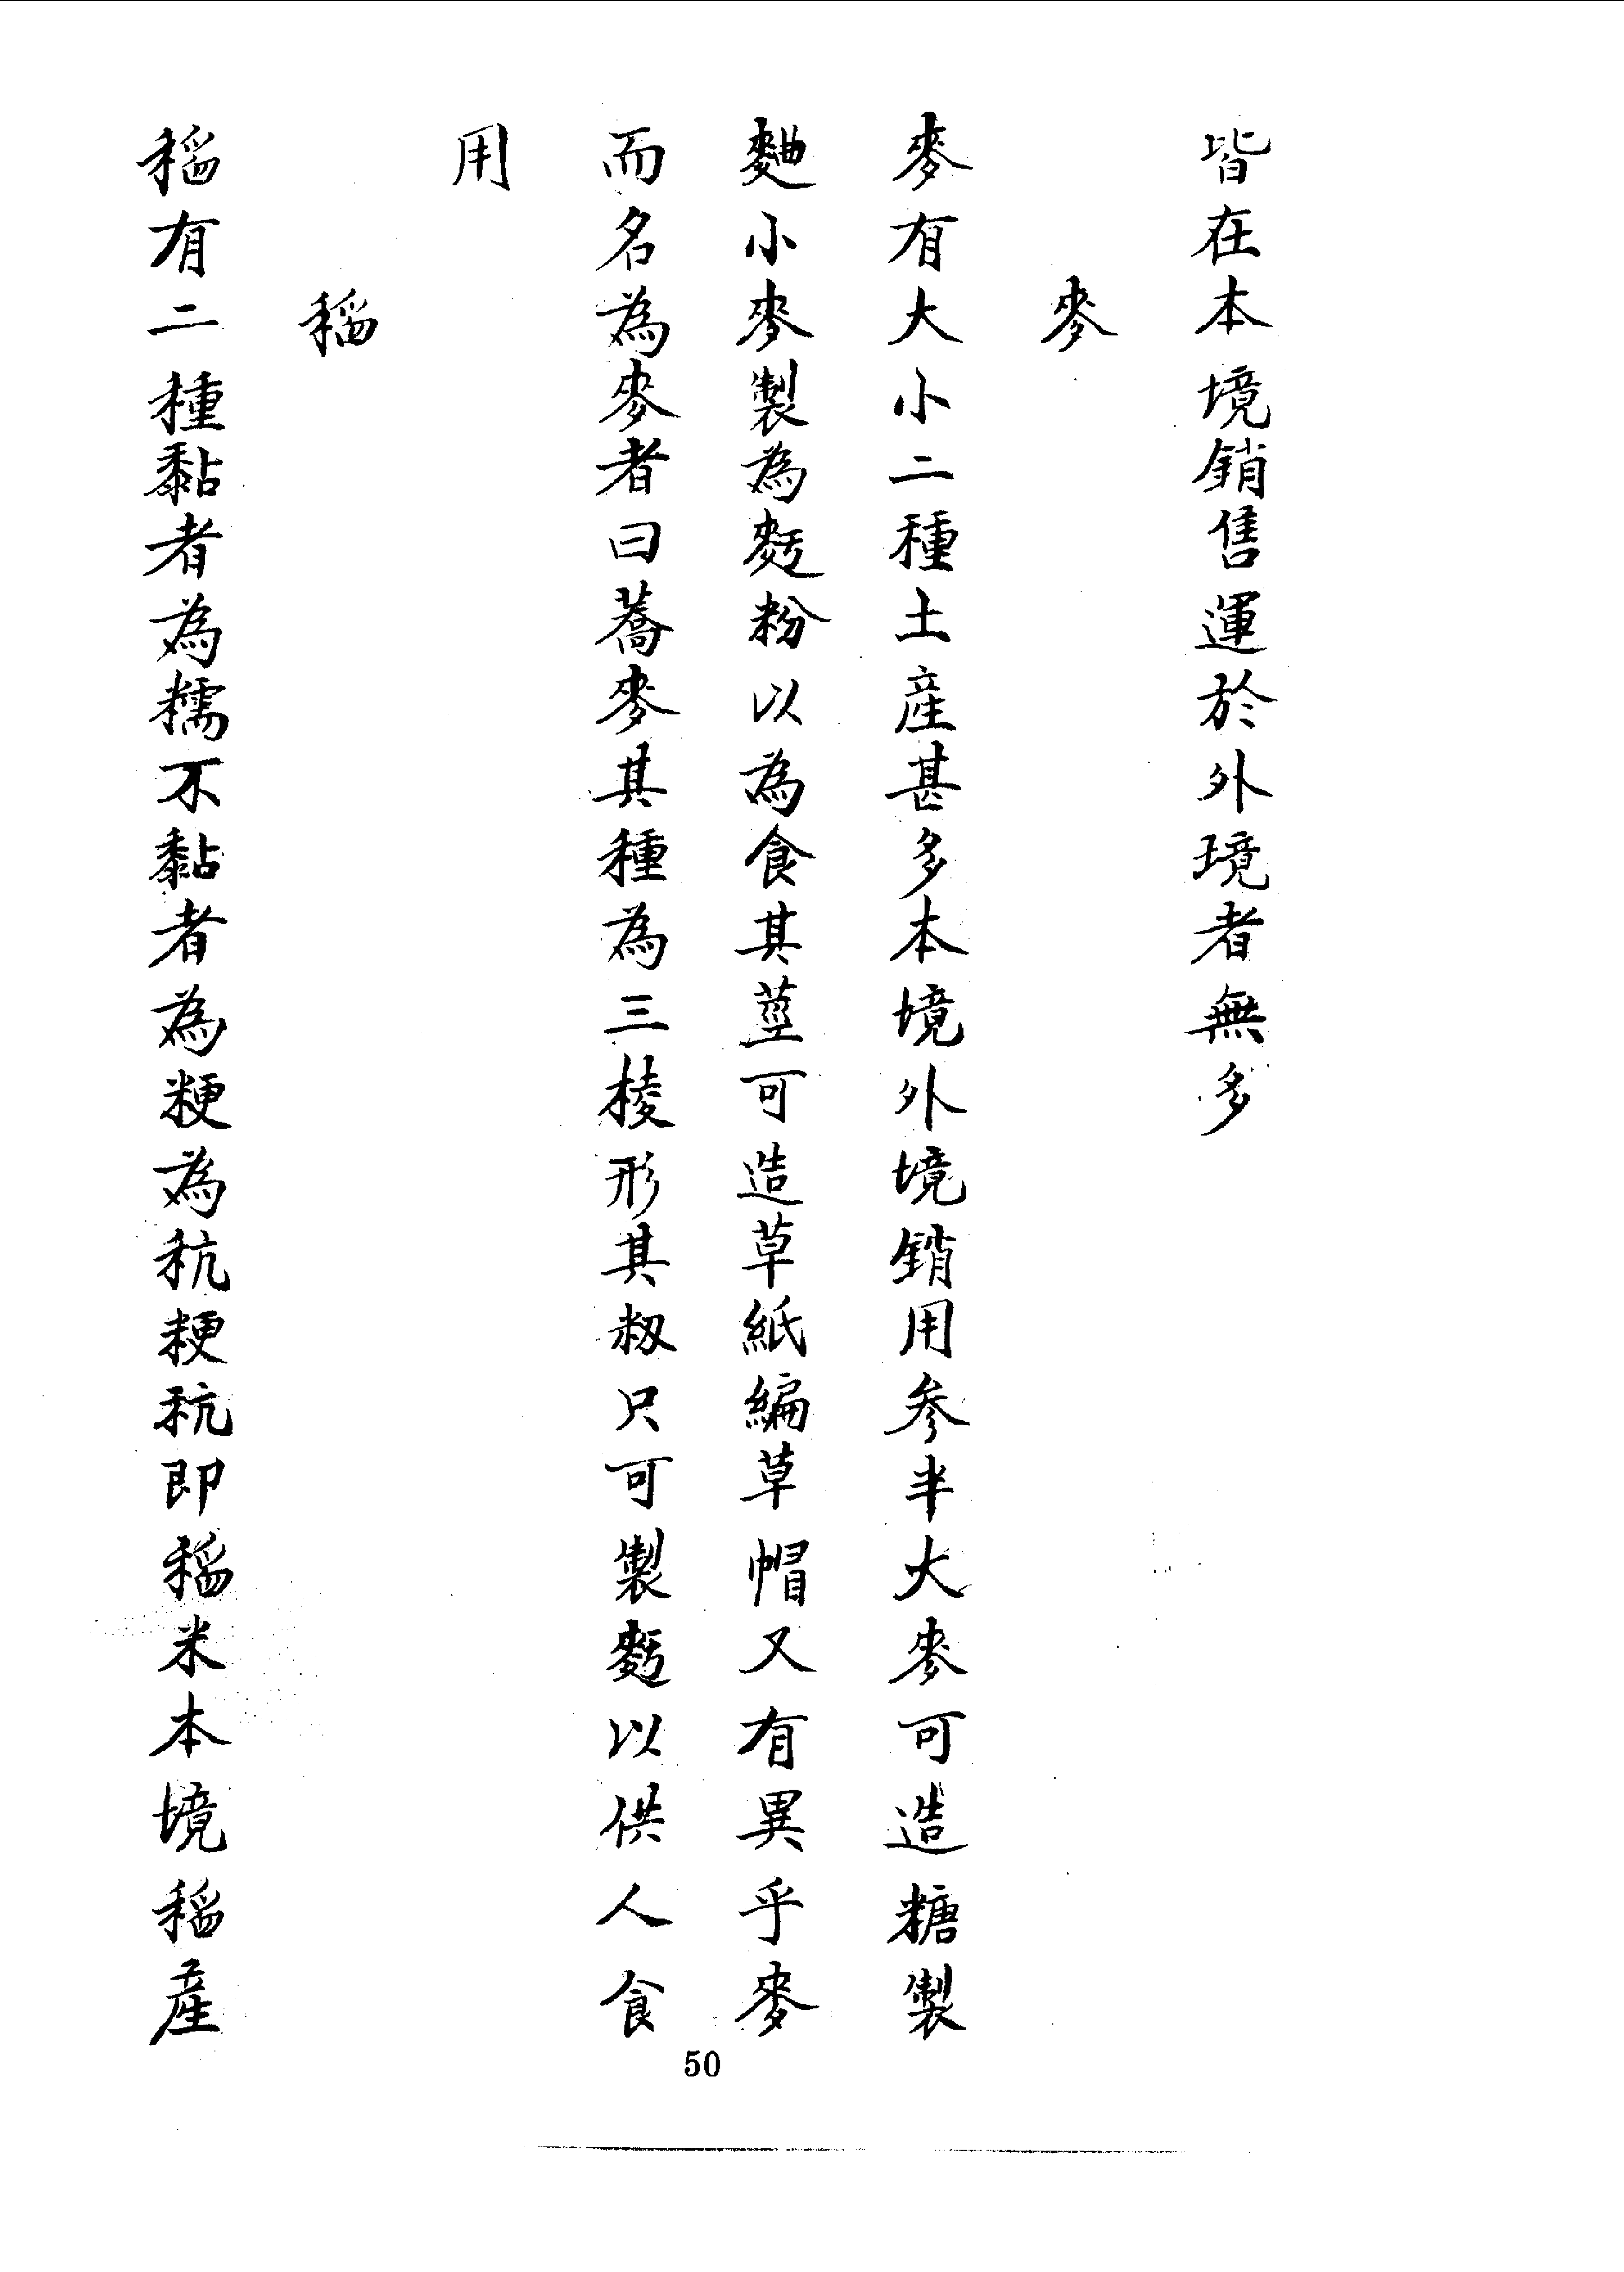 皆在本境銷售運於外境者無多
麥
麥有大小二種土產甚多本境外境銷用參半大麥可造糖製
麯小麥製為麪粉以為食其莖可造草紙編草帽又有異乎麥
而名為麥者曰蕎麥其種為三棱形其籾只可製麪以供人食
用
稻
稻有二種黏者為糯不黏者為粳為秔粳秔即稻米本境稻產
50